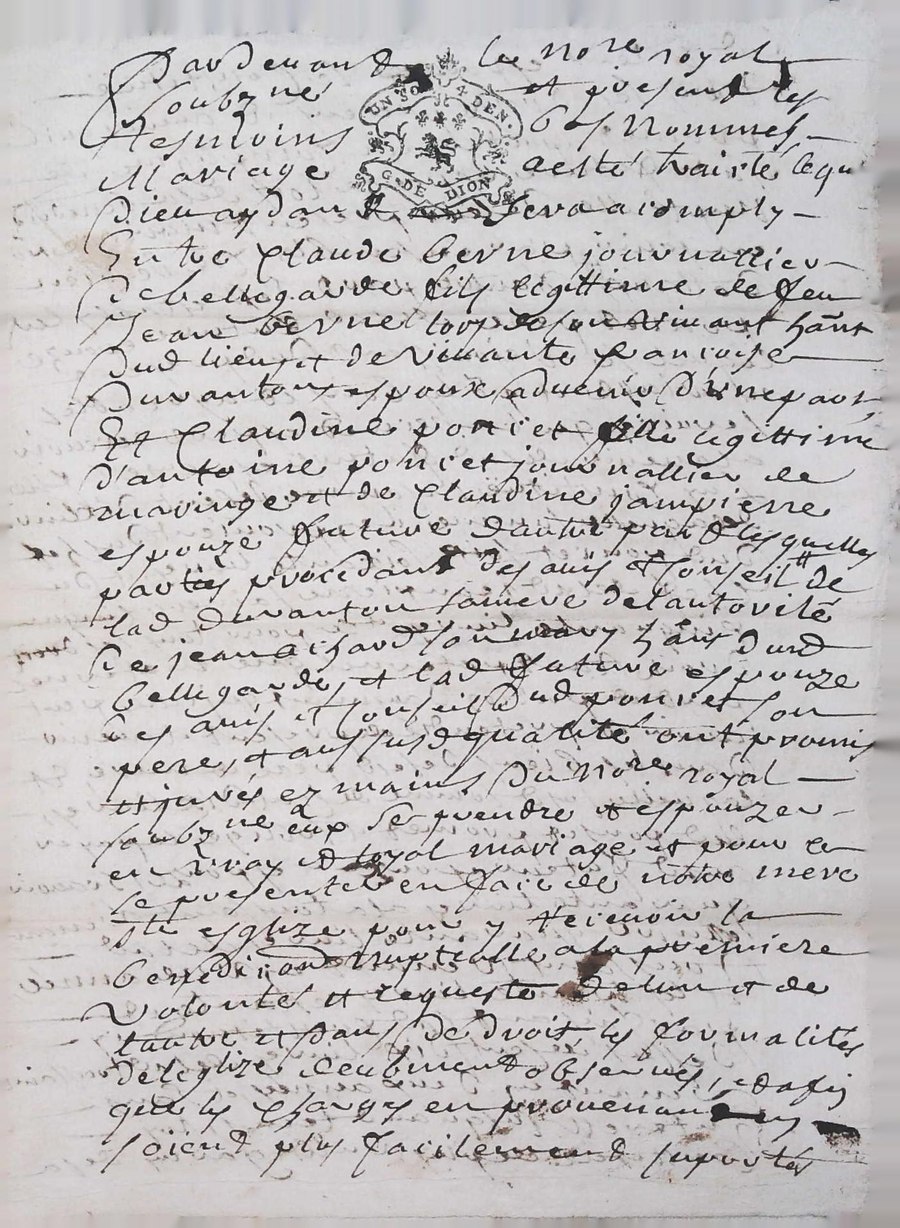 Pardevant le nore royal
soubzne et present les
tesmoins bas nommés
Mariage a esté traicté lequel
Dieu aydant sera acomply
Entre Claude berne journallier
de bellegarde fils legittime de feu
Jean berne lors de son vivant hant
dud lieu et de vivante francoise
Duvanton espoux advenir d'une part,
Et Claudine poncet fille legittime
d'antoine poncet journallier de
maringe et de Claudine jampierre
espouze future dautre part lesquelles
parties procedant des avis et Conseil de
lad duvanton sa mere de lautorité
de jean son mary hant dud
bellegarde, et lad future espouze
des avis et Conseil dud poncet son
pere, et aussusd qualité ont promis
et jurés ez mains du nore royal
soubzne eux se prendre et espouzer
en vray et loyal mariage et pour ce
se presenter en face de notre mere
ste esglize pour y recevoir la
benediction nuptialle a la premiere
volonté et requeste de lun et de
lautre et dans de droit, les formalités
de leglize deubment observés, et afin
que les charges en provenant
soient plus facilement suportés
UN SO 4 DEN.
G. DE DION